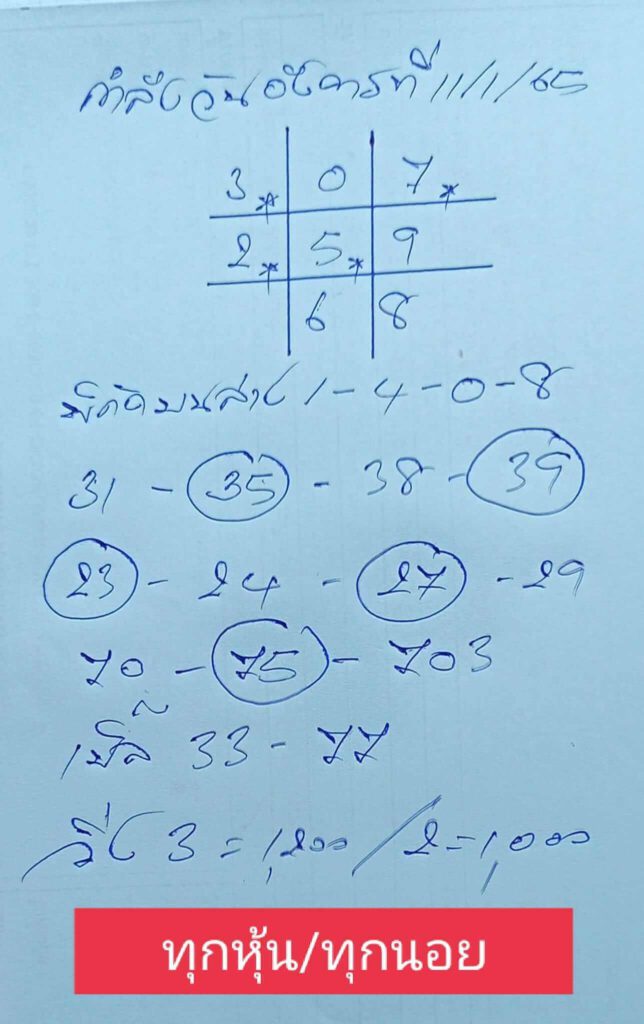 กำลังวันอังคารที่ 11/1/65
3* 0 7*
2* 5* 9
6 8
1-4-0-8
31 - 35 - 38 - 39
23 - 24 - 27 - 29
70 - 75 - 703
เบิ้ล 33 - 77
วิ่ง 3 = 1,200 / 2 = 1,000
ทุกหุ้น/ทุกนอย